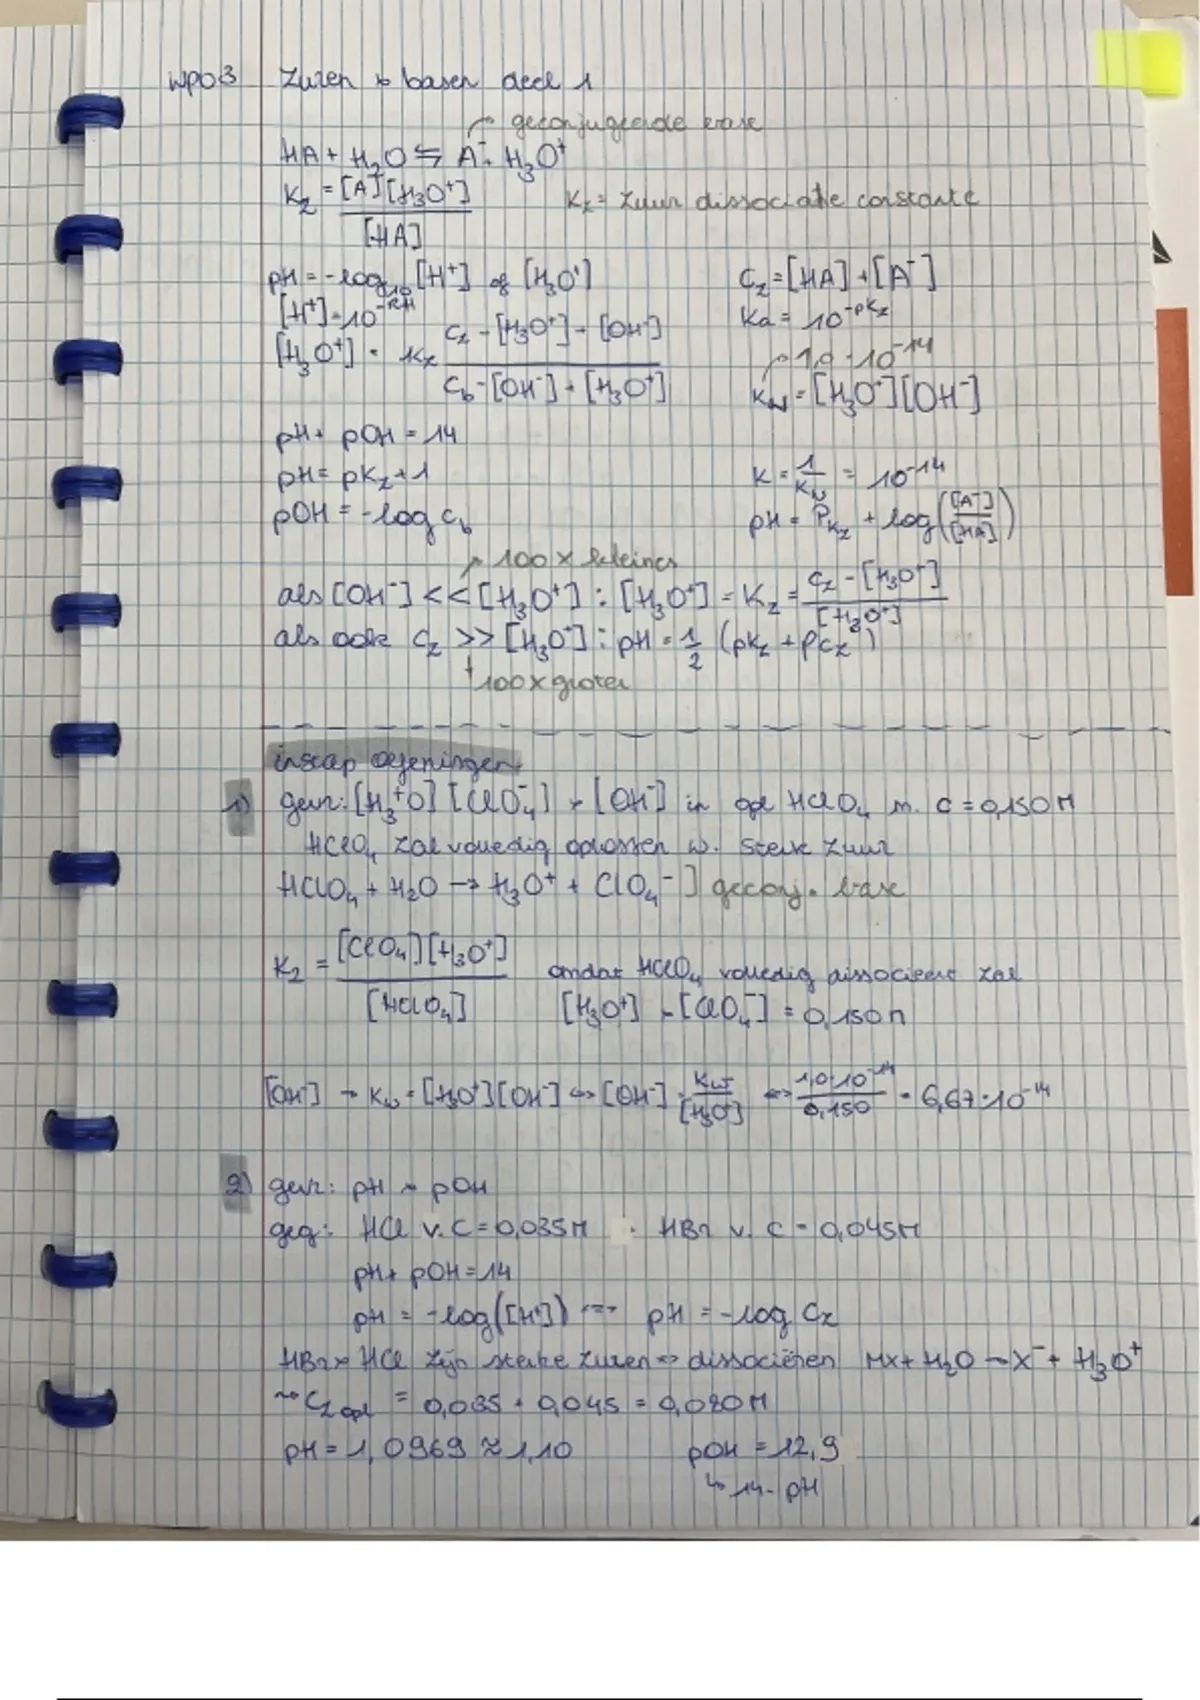 WPO3 Zuren & basen deel 1
↱ geconjugeerde base
HA + H₂O ⇆ A⁻ + H₃O⁺
Kz = [A⁻][H₃O⁺] / [HA]    Kz = zuur dissociatie constante
pH = -log₁₀ [H⁺] of [H₃O⁺]    Cz = [HA] + [A⁻]
[H⁺] = 10^-pH    Ka = 10^-pKz
[H₃O⁺] = Kz (Cz - [H₃O⁺] + [OH⁻]) / (Cb - [OH⁻] + [H₃O⁺])
↱ 1,0 · 10⁻¹⁴
Kw = [H₃O⁺][OH⁻]
pH + pOH = 14
pH = pKz + 1    K = 1/Kw = 10⁻¹⁴
pOH = -log Cb    pH = Pkz + log([A⁻]/[HA])
↱ 100 x kleiner
als [OH⁻] << [H₃O⁺] : [H₃O⁺] = Kz = (Cz - [H₃O⁺]) / [H₃O⁺]
als ook Cz >> [H₃O⁺] : pH = 1/2 (pKz + pCz)
↓ 100x groter
instap oefeningen
1) gevr: [H₃⁺O] [ClO₄⁻] & [OH⁻] in opl HClO₄ m. C = 0,150M
HClO₄ zal volledig oplossen w. sterk zuur
HClO₄ + H₂O → H₃O⁺ + ClO₄⁻ ] geconj. base
Kz = [ClO₄⁻][H₃O⁺] / [HClO₄]    omdat HClO₄ volledig dissocieert zal
[H₃O⁺] = [ClO₄⁻] = 0,150M
[OH⁻] → Kw = [H₃O⁺][OH⁻] ⇔ [OH⁻] = Kw / [H₃O⁺] ⇔ 1,0·10⁻¹⁴ / 0,150 = 6,67·10⁻¹⁴
2) gevr: pH & pOH
geg: HCl v. C = 0,035M · HBr v. C = 0,045M
pH + pOH = 14
pH = -log([H⁺]) ⇝ pH = -log Cz
HBr & HCl zijn sterke zuren ⇒ dissociëren HX + H₂O → X⁻ + H₃O⁺
⇝ Cz opl = 0,035 + 0,045 = 0,080M
pH = 1,0969 ≈ 1,10    pOH = 12,9
↳ 14 - pH